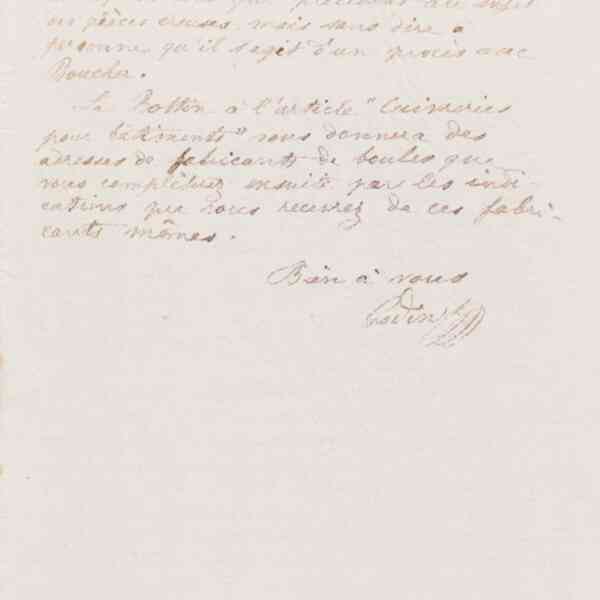 ou pièces creuses, mais sans dire à
personne qu'il s'agit d'un procès avec
Boucher.
Le Bottin à l'article "Cuivreries
pour bâtiments" vous donnera des
adresses de fabricants de boules que
vous complèterez ensuite par les indi-
cations que vous recevrez de ces fabri-
cants mêmes.
Bien à vous
Godin